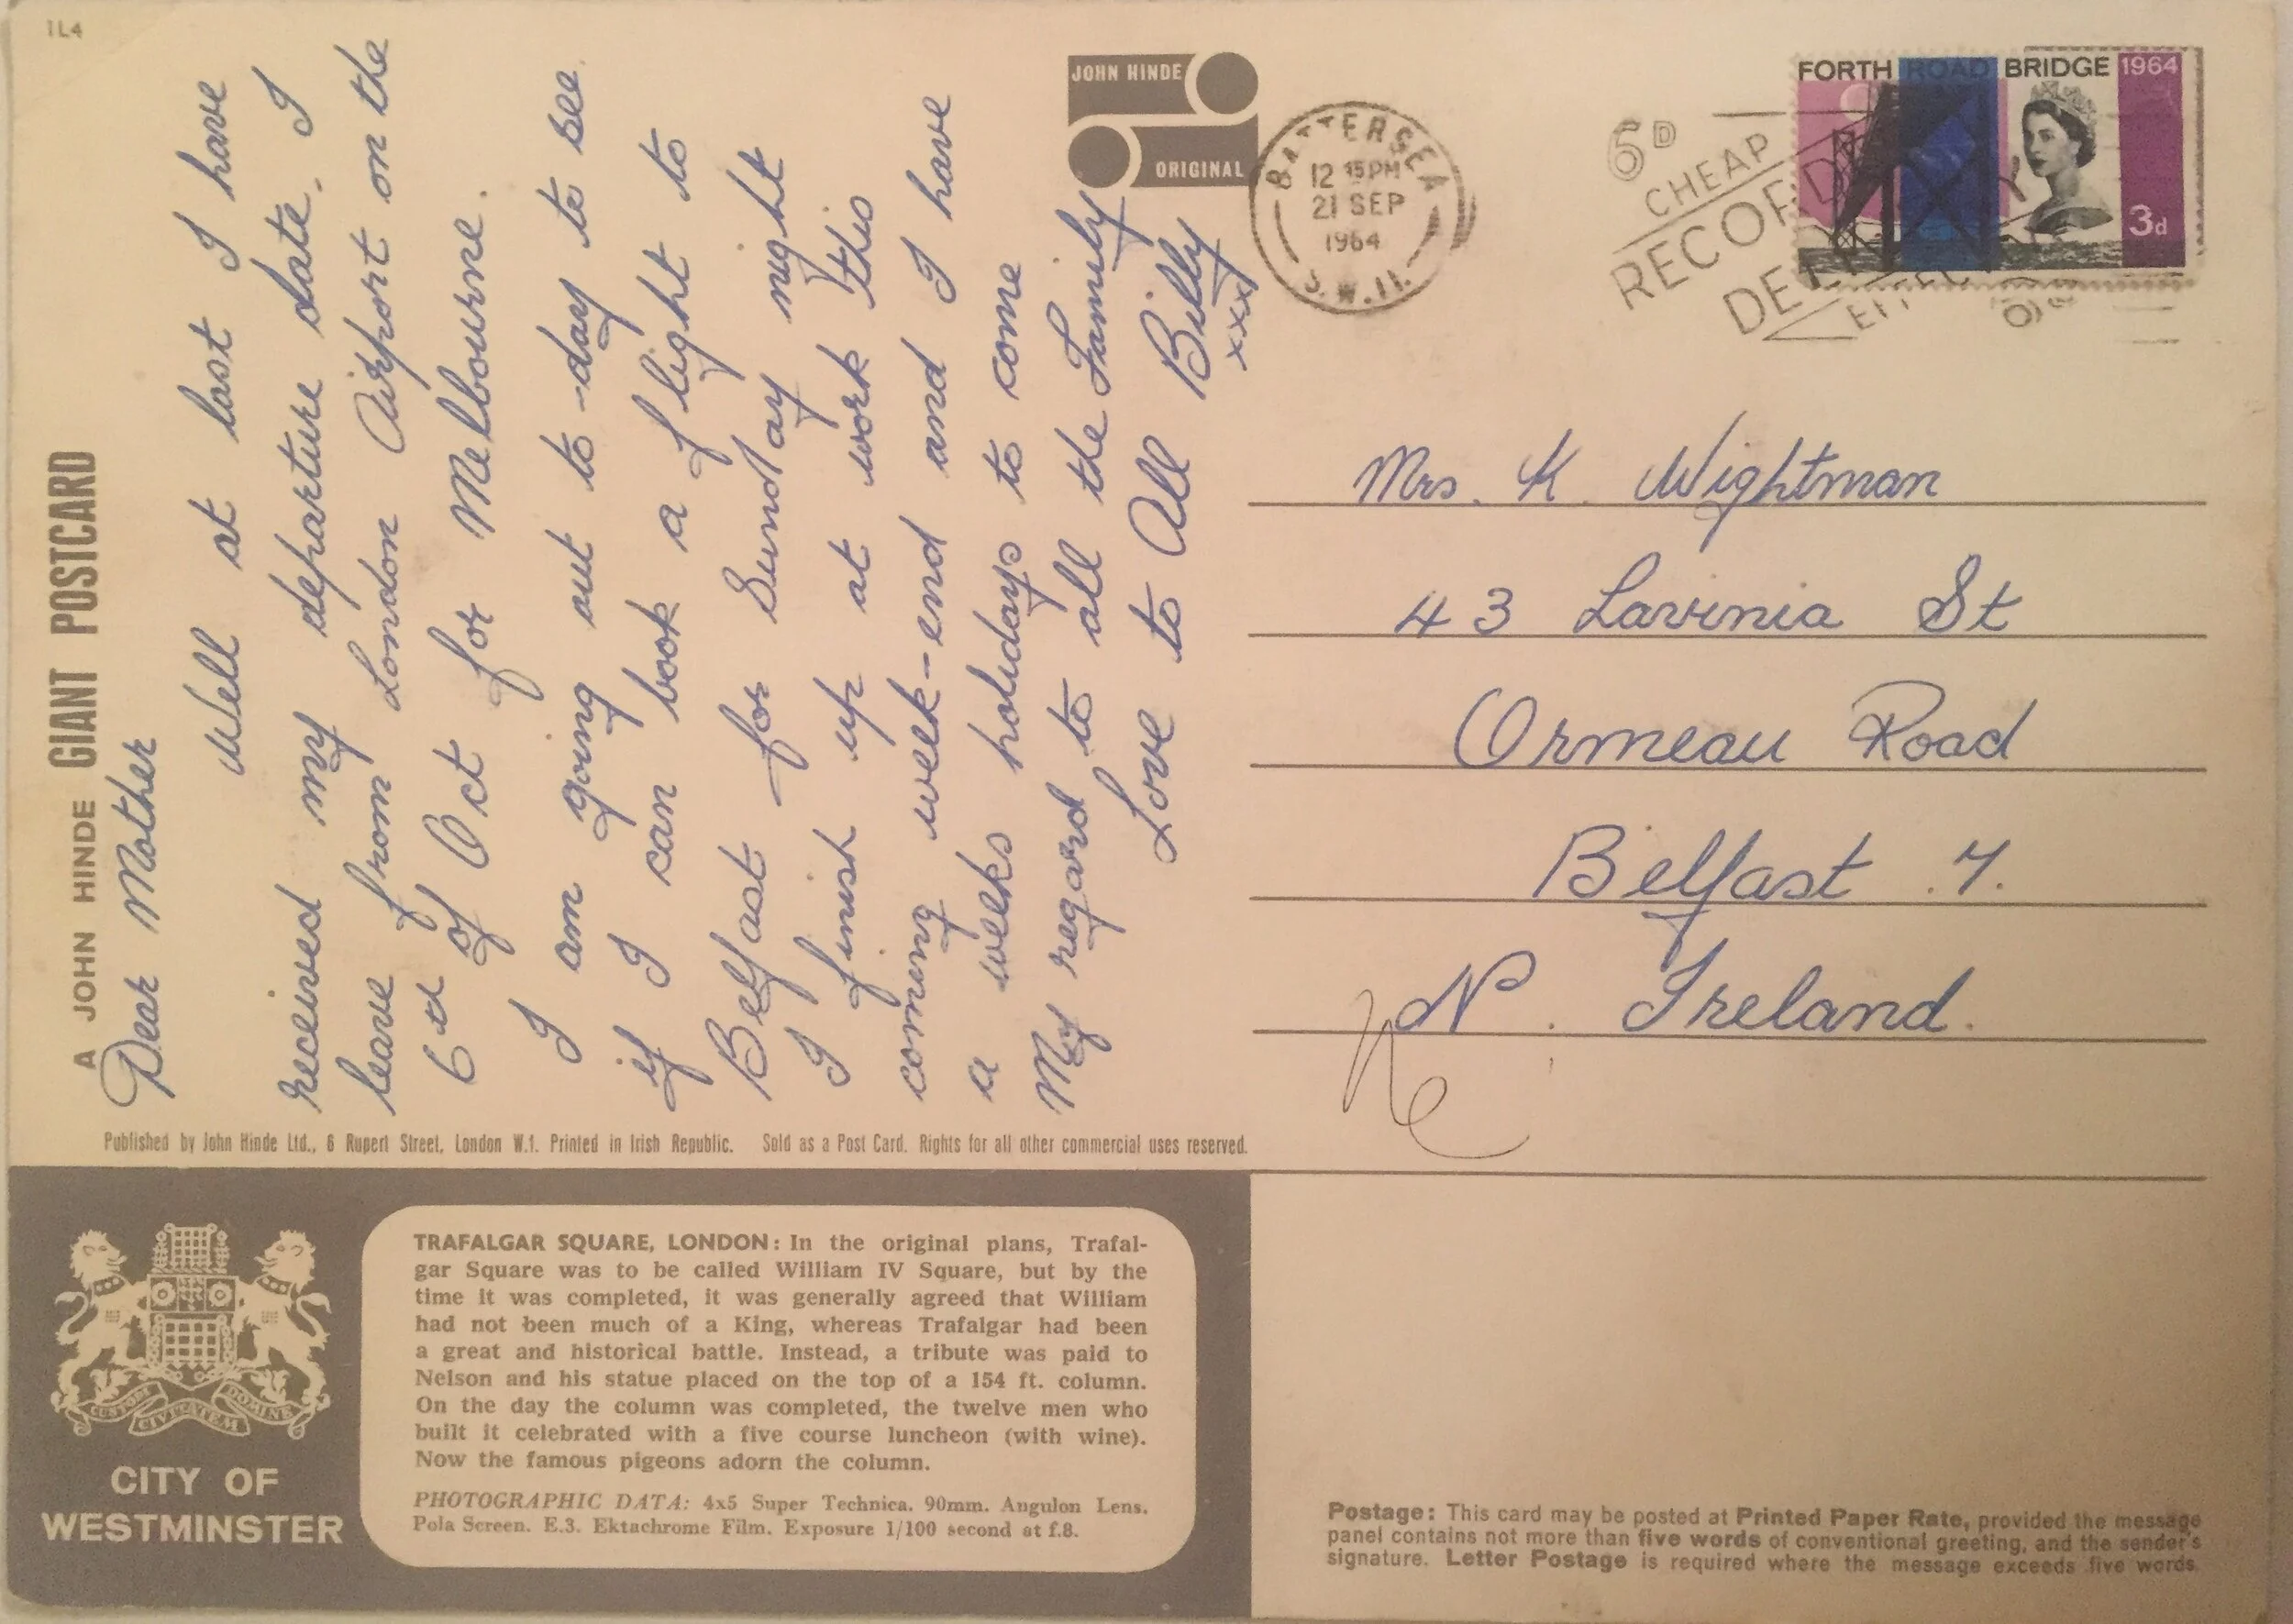 1L4
A JOHN HINDE GIANT POSTCARD
Dear Mother
Well at last I have
received my departure date. I
leave from London Airport on the
6th of Oct for Melbourne.
I am going out to-day to see
if I can book a flight to
Belfast for Sunday night
I finish up at work this
coming week-end and I have
a weeks holidays to come
My regard to all the Family
Love to All Billy
xxx
JOHN HINDE
ORIGINAL
Published by John Hinde Ltd., 6 Rupert Street, London W.1. Printed in Irish Republic. Sold as a Post Card. Rights for all other commercial uses reserved.
BATTERSEA
12 15PM
21 SEP
1964
S.W.11.
6D
CHEAP
RECORD
FORTH ROAD BRIDGE 1964
3d
Mrs. K. Wightman
43 Lavinia St
Ormeau Road
Belfast .7.
N. Ireland.
CUSTODI CIVITATEM DOMINE
CITY OF
WESTMINSTER
TRAFALGAR SQUARE, LONDON: In the original plans, Trafal-
gar Square was to be called William IV Square, but by the
time it was completed, it was generally agreed that William
had not been much of a King, whereas Trafalgar had been
a great and historical battle. Instead, a tribute was paid to
Nelson and his statue placed on the top of a 154 ft. column.
On the day the column was completed, the twelve men who
built it celebrated with a five course luncheon (with wine).
Now the famous pigeons adorn the column.
PHOTOGRAPHIC DATA: 4x5 Super Technica. 90mm. Angulon Lens.
Pola Screen. E.3. Ektachrome Film. Exposure 1/100 second at f.8.
Postage: This card may be posted at Printed Paper Rate, provided the message
panel contains not more than five words of conventional greeting, and the sender's
signature. Letter Postage is required where the message exceeds five words.